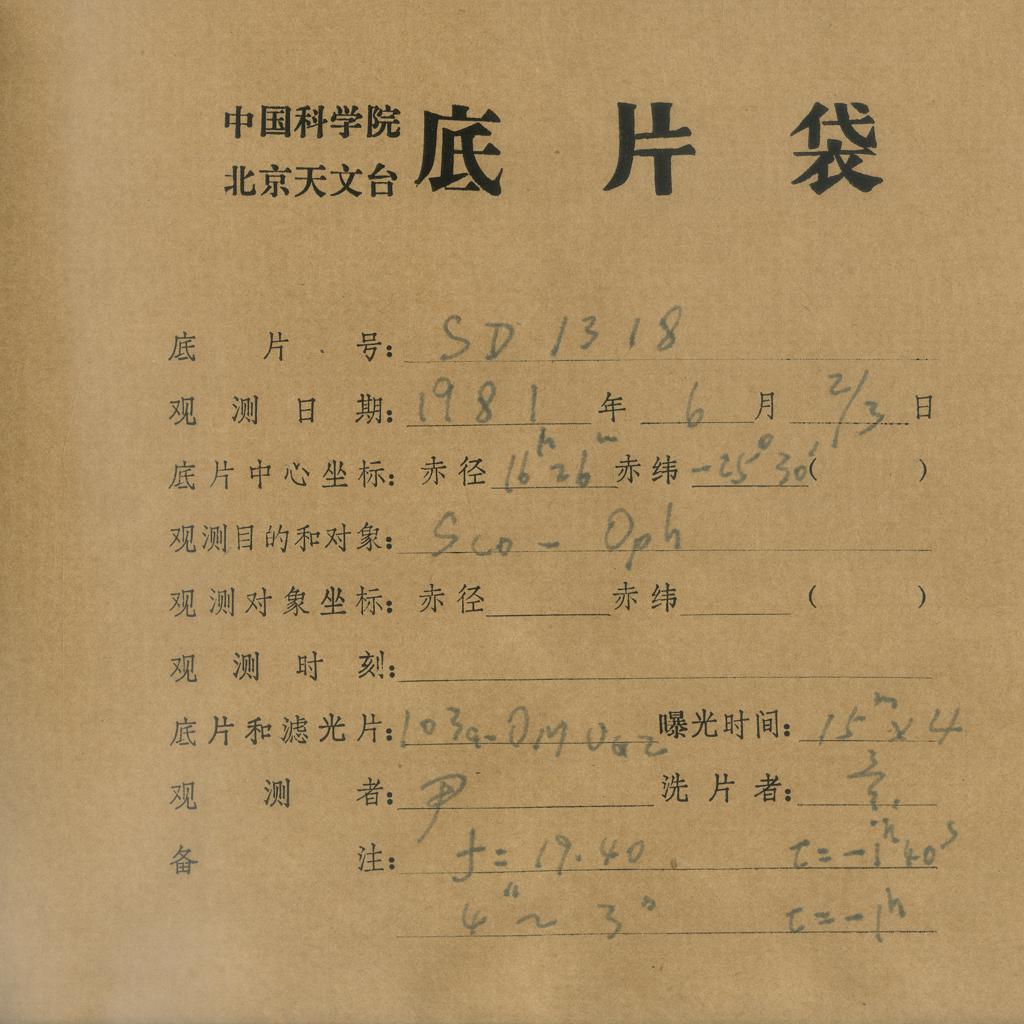 中国科学院
北京天文台
底片袋
底片号: SD 1318
观测日期: 1981年 6月 2/3日
底片中心坐标: 赤径 16ʰ26ᵐ 赤纬 -25°30′( )
观测目的和对象: Sco - Oph
观测对象坐标: 赤径 赤纬 ( )
观测时刻:
底片和滤光片: 103a-O 曝光时间: 15ᵐ×4
观测者: 尹 洗片者:
备注: f=19.40 t=-1ʰ40ˢ
4″~3″ t=-1ʰ